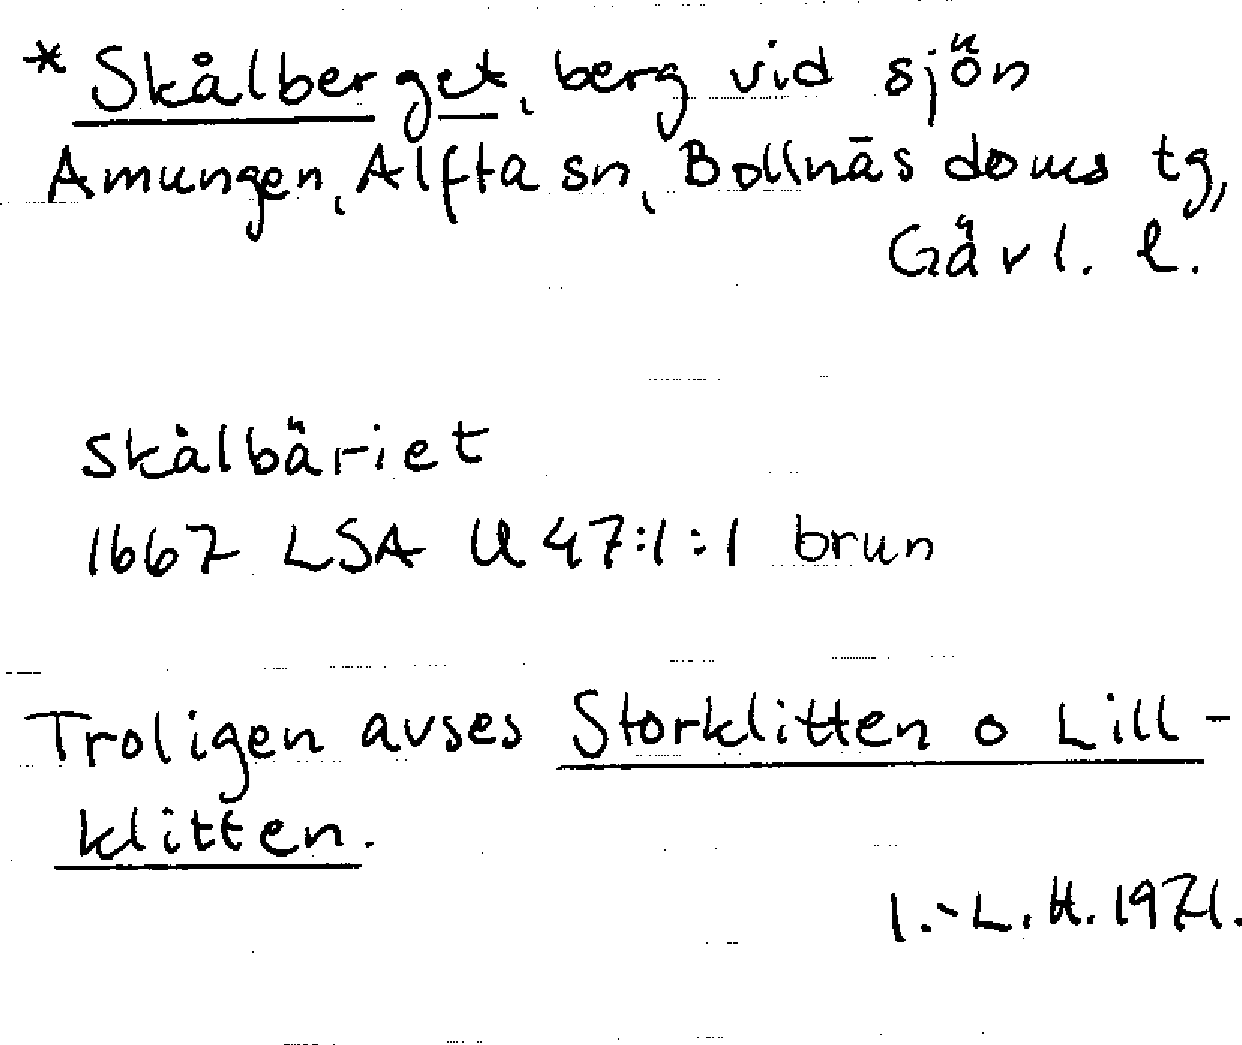 * Skålberget, berg vid sjön
Amungen, Alfta sn, Bollnäs doms tg,
Gävl. l.
Skålbäriet
1667 LSA U 47:1:1 brun
Troligen avses Storklitten o Lill-
klitten.
I.-L. H. 1971.